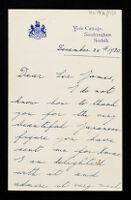 York Cottage,
Sandringham,
Norfolk.
December 26th 1920
Dear Lord James,
I do not
know how to thank
you for the very
beautiful Japanese
figure you have
sent me for Xmas
I am delighted
with it and
admire it very much